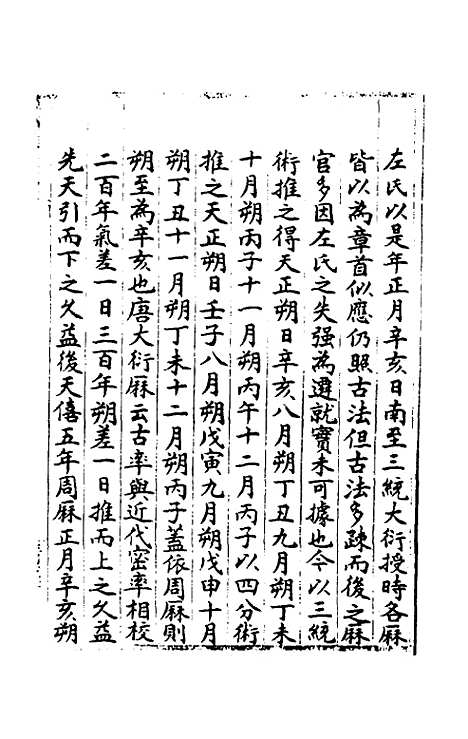 左氏以是年正月辛亥日南至三統大衍授時各厤
皆以為章首似應仍照古法但古法多疎而後之厤
官多因左氏之失强為遷就實未可據也今以三統
術推之得天正朔日辛亥八月朔丁丑九月朔丁未
十月朔丙子十一月朔丙午十二月丙子以四分術
推之天正朔日壬子八月朔戊寅九月朔戊申十月
朔丁丑十一月朔丁未十二月朔丙子蓋依周厤則
朔至為辛亥也唐大衍厤云古率與近代密率相校
二百年氣差一日三百年朔差一日推而上之久益
先天引而下之久益後天僖五年周厤正月辛亥朔